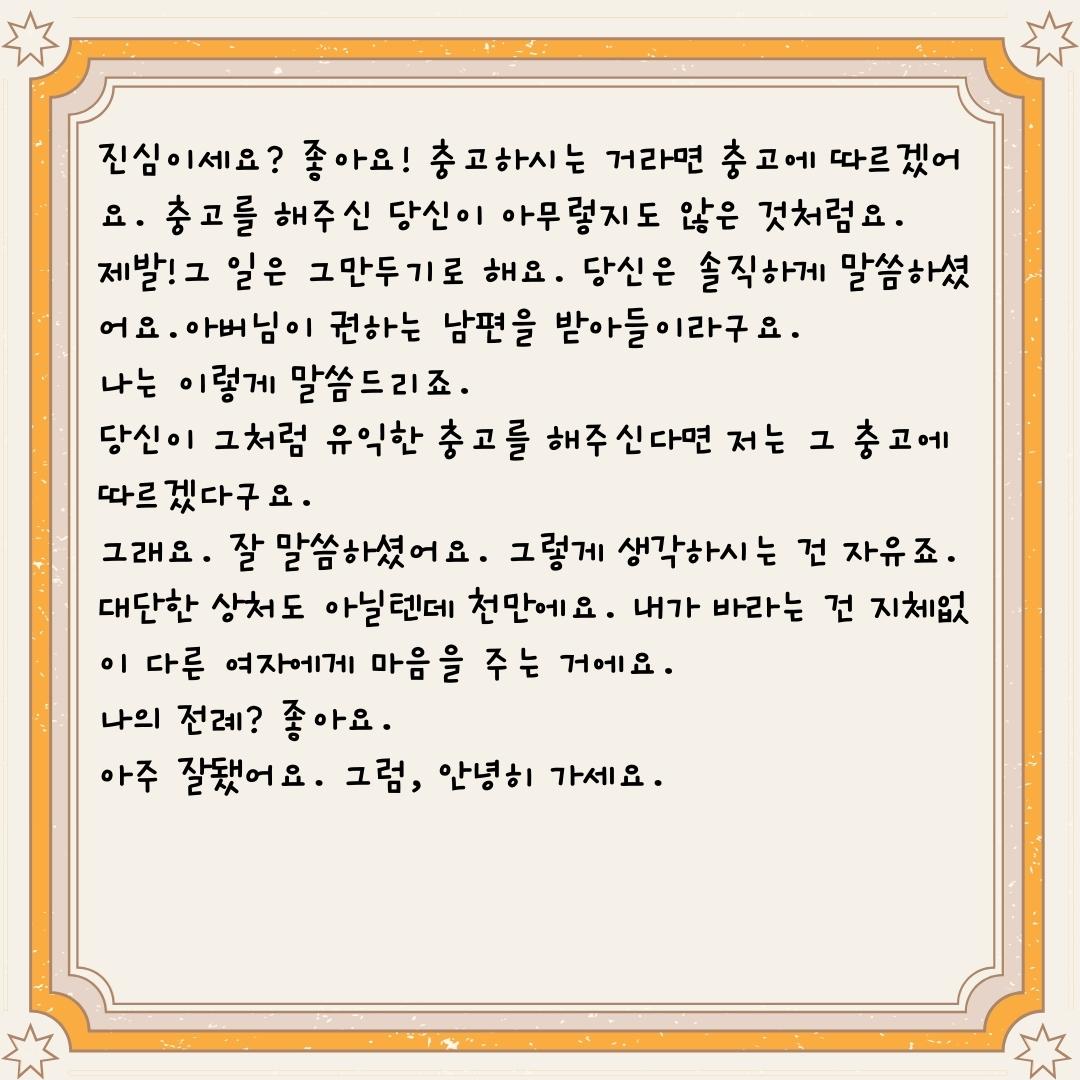 진심이세요? 좋아요! 충고하시는 거라면 충고에 따르겠어
요. 충고를 해주신 당신이 아무렇지도 않은 것처럼요.
제발!그 일은 그만두기로 해요. 당신은 솔직하게 말씀하셨
어요.아버님이 권하는 남편을 받아들이라구요.
나는 이렇게 말씀드리죠.
당신이 그처럼 유익한 충고를 해주신다면 저는 그 충고에
따르겠다구요.
그래요. 잘 말씀하셨어요. 그렇게 생각하시는 건 자유죠.
대단한 상처도 아닐텐데 천만에요. 내가 바라는 건 지체없
이 다른 여자에게 마음을 주는 거에요.
나의 전례? 좋아요.
아주 잘됐어요. 그럼, 안녕히 가세요.